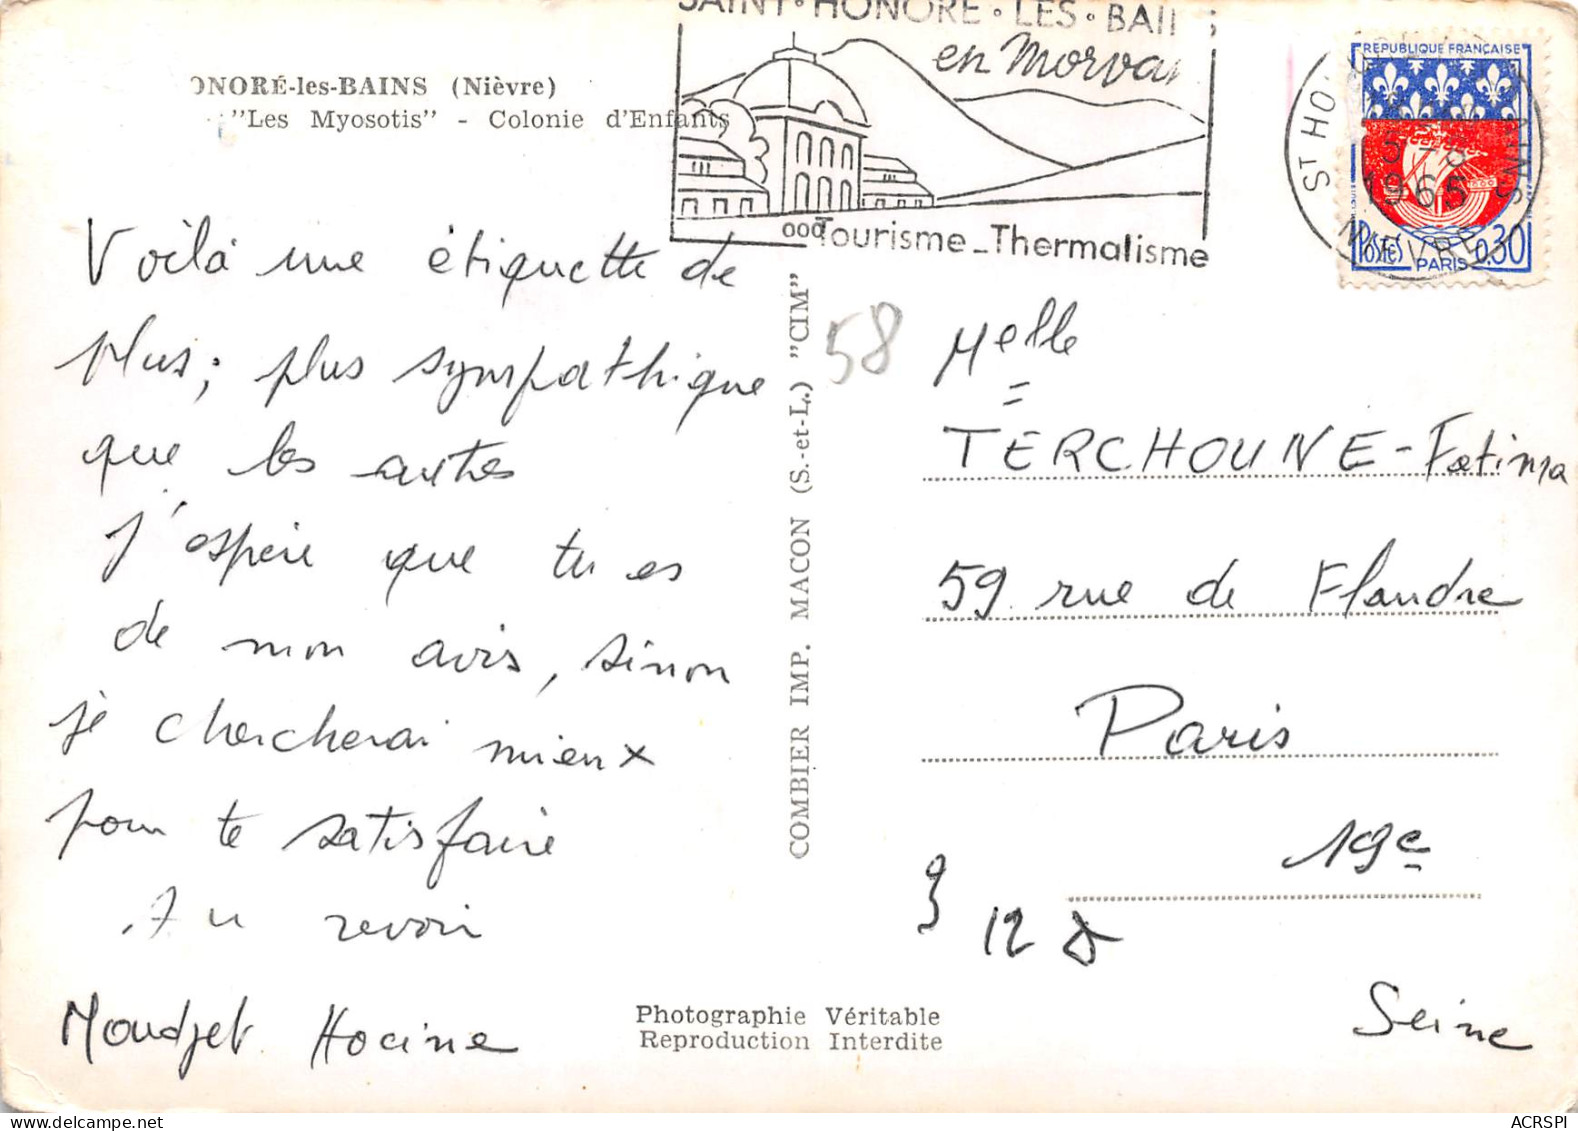 SAINT • HONORÉ • LES • BAINS
en Morvan
Tourisme - Thermalisme
ONORÉ-les-BAINS (Nièvre)
"Les Myosotis" - Colonie d'Enfants
REPUBLIQUE FRANÇAISE
POSTES
PARIS
0,30
ST HO
1965
NIEVRE
Voilà une étiquette de
plus; plus sympathique
que les autres
J'espère que tu es
de mon avis, sinon
je chercherai mieux
pour te satisfaire
Au revoir
Moudjeb Hocine
COMBIER IMP. MACON (S.-et-L.) "CIM"
58
Melle
TERCHOUNE - Fatima
59 rue de Flandre
Paris
19e
12
Seine
Photographie Véritable
Reproduction Interdite
ACRSPI